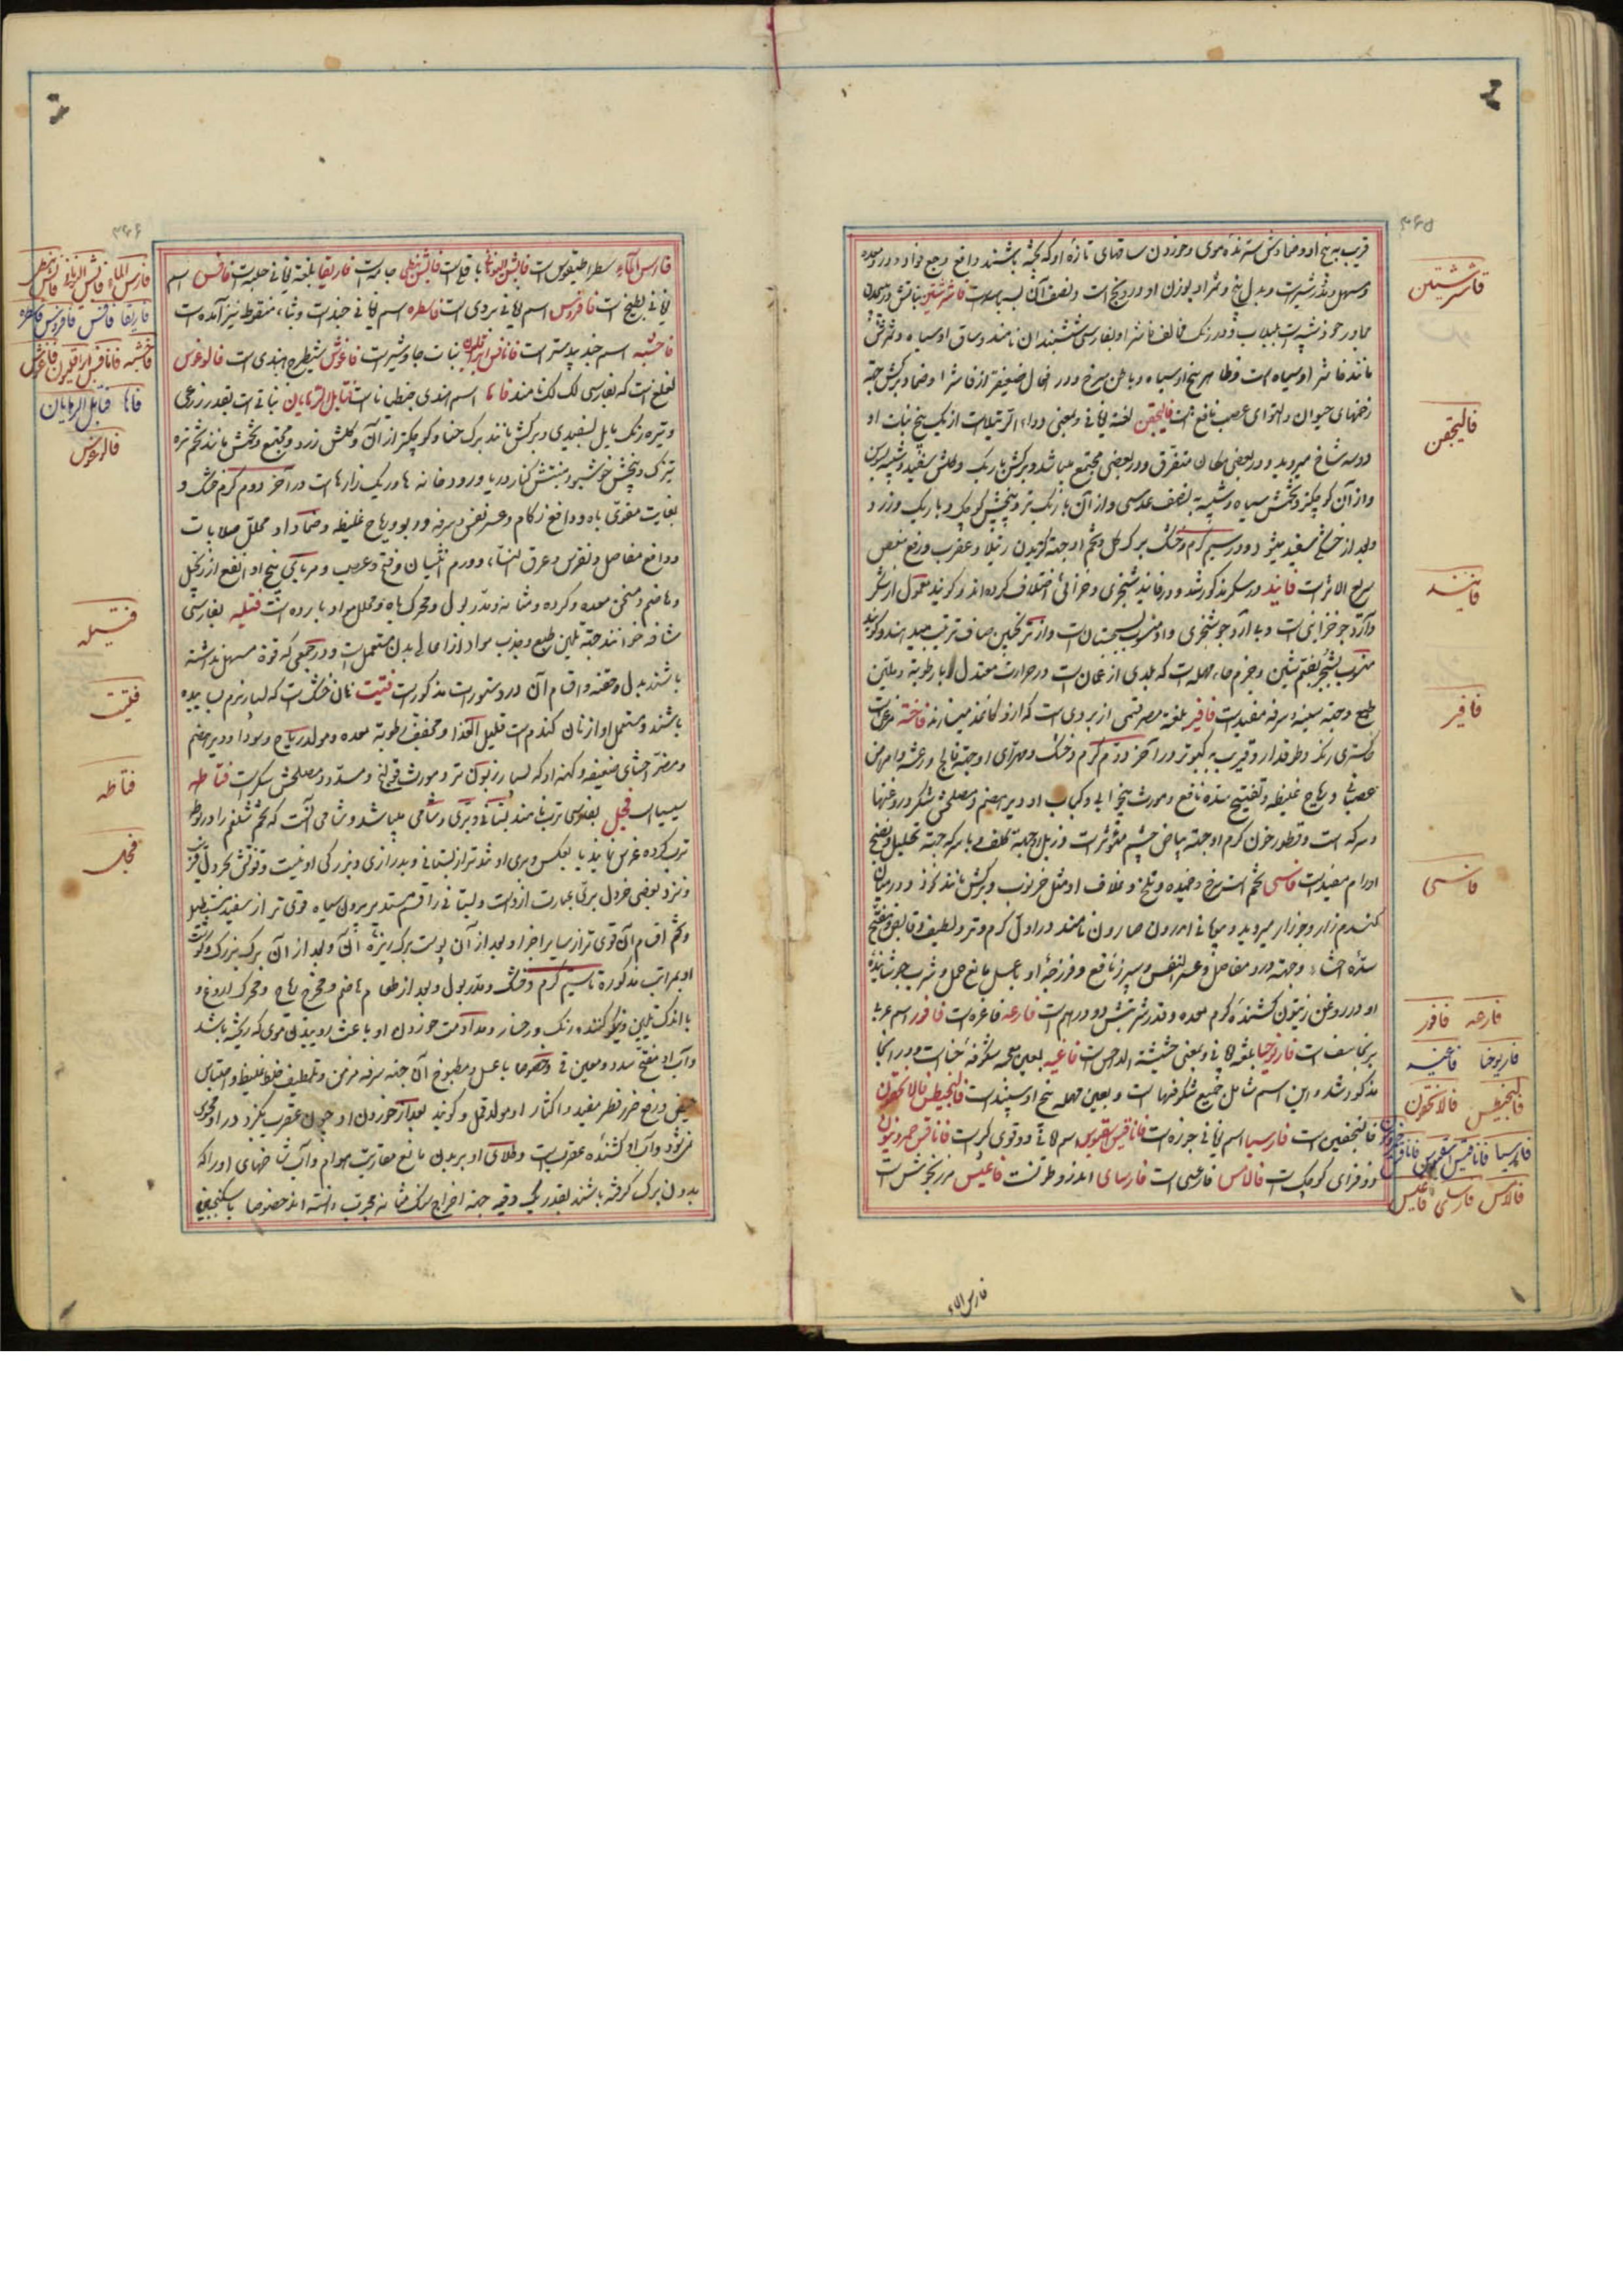 ۳۶۵
قریب به بیخ او و ضمادش سترندهٔ موی و خوردن ساقهای تازهٔ او که پخته باشند دافع وجع فواد و درد معده
و مسهل و مدر شیر است و بدل بیخ و ثمر او بوزن او درونج است و نصف آن بسباسه است فاشرشتین نباتش
مجاور خود شبیه است بلبلاب و در رنگ مخالف فاشرا و بفارسی ششبندان نامند و ساق او سیاه و ثمرش
مانند فاشرا و سیاه است و ظاهر بیخ او سیاه و باطن سرخ و در افعال ضعیفتر از فاشرا و ضماد برگش جهة
زخمهای حیوان و التوای عصب نافع است فالیجقن لغة یونانی و بمعنی دواء الرتیلا است از یک بیخ نبات او
دو سه شاخ میروید و در بعضی مکان متفرق و در بعضی مجتمع میباشد و برگش باریک و گلش سفید و شبیه
و از آن کوچکتر و تخمش سیاه و شبیه بنصف عدسی و از آن باریک تر و بیخش کوچک و باریک و زرد
و بعد از خشکی سفید میشود در سیم گرم و خشک برگ و گل و تخم او جهة گزیدن رتیلا و عقرب و رفع مغص
سریع الاثر است فانید در سکر مذکور شد و در فانید شجری و خزائنی اختلاف کرده‌اند و گویند معمول از شکر
و آرد جو خزائنی است و با آرد جو شجری و او منسوب بسجستان است و از ترنجبین صاف ترتیب میدهند و گویند
منسوب بشحر بفتح شین و جزم حاء مهمله است که بلدی از عمان است در حرارت معتدل و با رطوبة و ملین
طبع و جهة سینه و سرفه مفید است فافیر بلغة مصر قسمی از بردی است که از او کاغذ میسازند فاخته مرغی است
خاکستری رنگ و طوقدار و قریب به کبوتر و در آخر دوم گرم و خشک و مهرای او جهة فالج و رعشه و امراض
عصبانی و ریاح غلیظه و تفتیح سده نافع و مورث بیخوابی و کباب او دیر هضم و مصلحش شکر و روغنها
و سرکه است و قطور خون گرم او جهة بیاض چشم موثر است و زبل او جهة کلف و با سرکه جهة تحلیل و نضج
اورام مفید است فاسی تخم است سرخ و خمیده و تلخ و غلاف او مثل خرنوب و برگش مانند نخود و در میان
گندم زار و جوزار میروید و بیونانی اندرون صارون نامند در اول گرم و تر و لطیف و قابض و مفتح
سدهٔ احشاء و جهة درد مفاصل و عسر النفس و سپرز نافع و فرزجهٔ او با عسل مانع حمل و شرب جوشانیدهٔ
او در روغن زیتون کشندهٔ کرم معده و قدر شربتش دو درهم است فارعه فاغره است فافور اسم عربی
برنجاسف است فاریوخیا بلغة یونانی و بمعنی حشیشة الداحس است فاغیه بغین معجمه شکوفهٔ حنا است و در انجا
مذکور شد و این اسم شامل جمیع شکوفها است و بعین مهمله بیخ اسپند است فالنجیطس فالانجقون
فالیجقین است فارسیا اسم یونانی جوزه است فاناقیس اسقیوس اسم یونانی دوقوی کر است فاناقس خیرونیون
و زوفرای کوچک است فالاس فارعیی است فارسای اندروطرنست فاعیس مرزنجوش است
فاشرشتین
فالیجقن
فانید
فافیر
فاسی
فارعه فافور
فاریوخا فاغیه
فالنجیطس فالانجقون
فارسیا فاناقیس اسقیوس فاناقس
فالاس فارسای فاعیس
فارس الماء
۳۶۶
فارس الماء سطراطیقوس است باقلی است جامه است فاریقا بلغة یونانی حلبه است فافس اسم
یونانی بطیخ است فافروس اسم یونانی بردی است فاسطره اسم یونانی خبث است و بثاء منقوطه نیز آمده است
فاخشبه اسم جندبیدستر است نبات جاوشیر است فاغوش شیطرج هندی است فالوغوس
لعلع است که بفارسی لک لک نامند فانا اسم هندی جنطیانا است قتایل الرهبان نباتی است بقدر زرعی
و تیره رنگ مایل بسفیدی و برگش مانند برگ حنا و کوچکتر از آن و گلش زرد و مجتمع و تخمش مانند تخم تره
تیزک و بیخش خوشبو و منبتش کنار دریا و رودخانه ها و ریگ زارها است در آخر دوم گرم و خشک و
بغایت مقوی باه و دافع زکام و عسر نفس و سرفه و ربو و ریاح غلیظه و ضماد او محلل صلابات
و دافع مفاصل و نقرس و عرق النسا و ورم انثیان و فتق و عصب و مربای بیخ او انفع از زنجبیل
و هاضم و مسخن معده و گرده و مثانه و مدر بول و محرک باه و محلل مواد بارده است فتیله بفارسی
شافه خوانند جهة تلیین طبع و جذب مواد از اعالی بدن مستعمل است و در جمعی که قوة مسهل نداشته
باشند بدل و حقنه و اقسام آن در دستورات مذکور است فتیت نان خشک است که بسیار نرم ساییده
باشند و مستعمل او از نان گندم است قلیل الغذا و مجفف رطوبة معده و مولد ریاح و سودا و دیر هضم
و مضر احشای ضعیفه و کهنه او که بسیار زبون تر و مورث قولنج و مسدد و مصلحش شکر است فتاطه
سیسیا است فجل بفارسی ترب نامند بستانی و بری و شامی میباشد و شامی آنست که تخم شلغم را در وسط
ترب کرده غرس نمایند یا بعکس و بری او تندتر از بستانی و بدرازی و بزرگی او نیست و قوتش بخردل قریب
و نزد بعضی خردل بری عبارت از اوست و بستانی را قسم مستدیر بیرون سیاه قوی تر از سفید مستطیل
و تخم اقسام آن قوی تر از سایر اجزا و بعد از آن پوست برگ ریزهٔ آن و بعد از آن برگ بزرگ و گوشت
او بمراتب مذکوره تا سیم گرم و خشک و مدر بول و بعد از طعام هاضم و مخرج ریاح و محرک اروغ و
با اندک تلیین و نیکو کننده رنگ رخسار و مداومت خوردن او باعث روییدن موی که ریخته باشد
و آب او مفتح سدد و معین قی و خصوصا با عسل و مطبوخ آن جهة سرفه مزمن و تلطیف خلط غلیظ و احتباس
حیض و رفع ضرر فطر مفید و اکثار او مولد قمل و گویند بعد از خوردن او چون عقرب بگزد در او مؤثر
نمیشود و آب او کشندهٔ عقرب است و طلای او بر بدن مانع مقاربت هوام و آب شاخهای او را که
بدون برگ گرفته باشند بقدر یک وقیه جهة اخراج سنگ مثانه مجرب دانسته اند خصوصا با سکنجبین
فارس الماء
فاریقا فافس فافروس فاسطره
فاخشبه
فانا قتایل الرهبان
فالوغوس
فتیله
فتیت
فتاطه
فجل